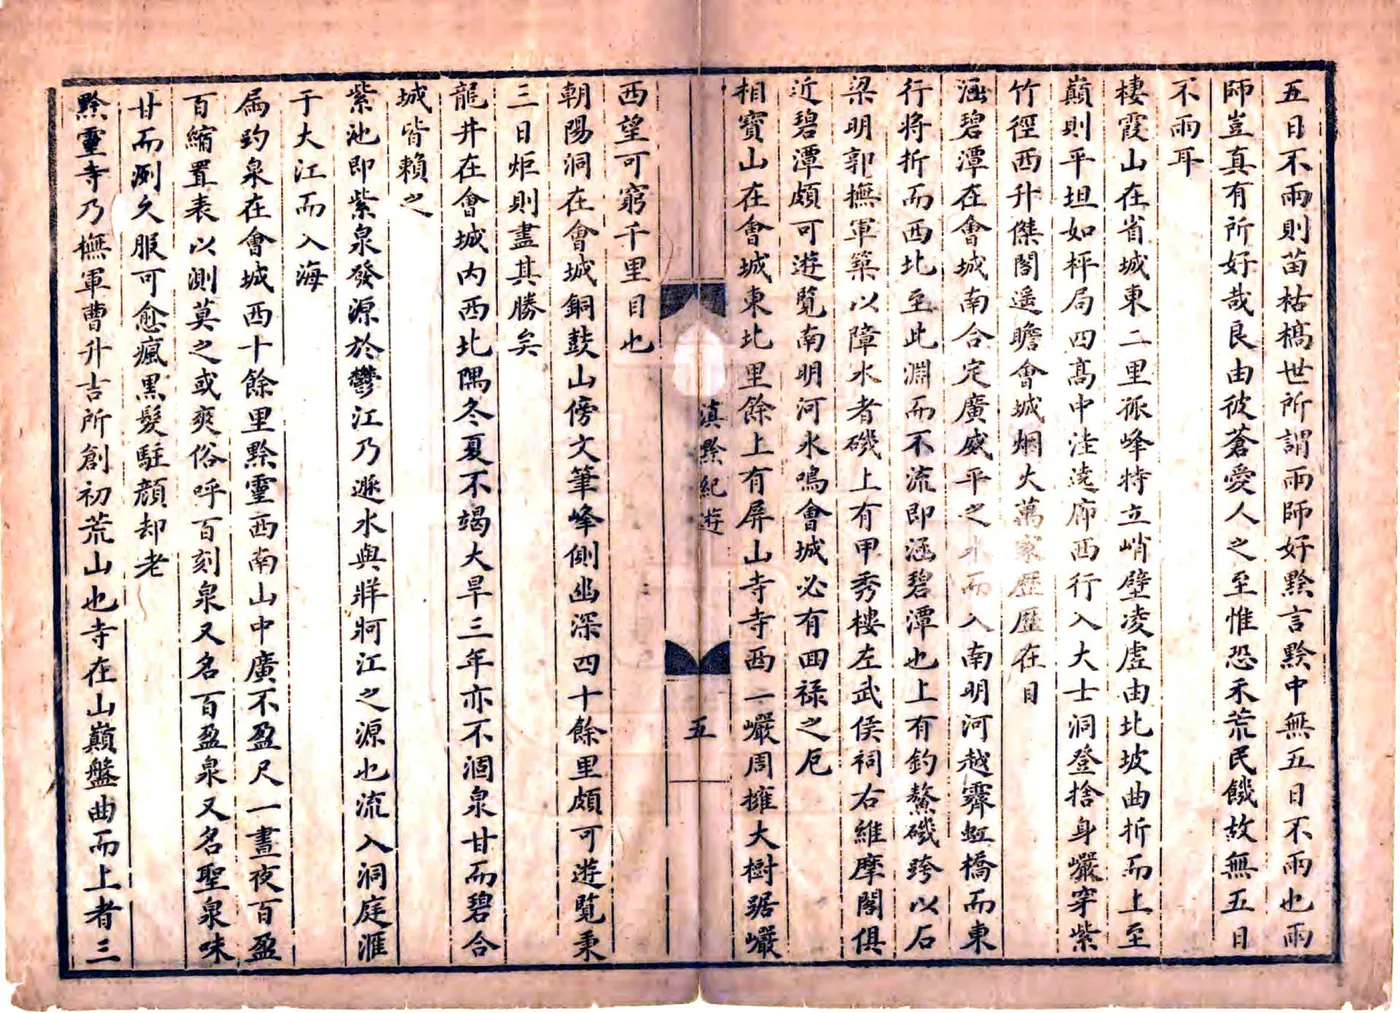 五日不雨則苗枯槁世所謂雨師好黔言黔中無五日不雨也雨
師豈真有所好哉良由彼蒼愛人之至惟恐禾荒民饑故無五日
不雨耳
棲霞山在省城東二里孤峰特立峭壁凌虛由北坡曲折而上至
巔則平坦如枰局四高中洼遶廊西行入大士洞登捨身巖穿紫
竹徑西升傑閣遥瞻會城烟火萬家歷歷在目
涵碧潭在會城南合定廣威平之水而入南明河越霽虹橋而東
行將折而西北至此淵而不流即涵碧潭也上有釣鰲磯跨以石
梁明郭撫軍築以障水者磯上有甲秀樓左武侯祠右維摩閣俱
近碧潭頗可遊覧南明河水鳴會城必有回禄之厄
相寶山在會城東北里餘上有屏山寺寺西一巖周擁大樹踞巖
滇黔紀遊
五
西望可窮千里目也
朝陽洞在會城銅鼓山傍文筆峰側幽深四十餘里頗可遊覧秉
三日炬則盡其勝矣
龍井在會城内西北隅冬夏不竭大旱三年亦不涸泉甘而碧合
城皆賴之
紫池即紫泉發源於鬱江乃遯水與牂牁江之源也流入洞庭滙
于大江而入海
扄趵泉在會城西十餘里黔靈西南山中廣不盈尺一晝夜百盈
百縮置表以測莫之或爽俗呼百刻泉又名百盈泉又名聖泉味
甘而洌久服可愈瘋黑髮駐顔却老
黔靈寺乃撫軍曹升吉所創初荒山也寺在山巔盤曲而上者三